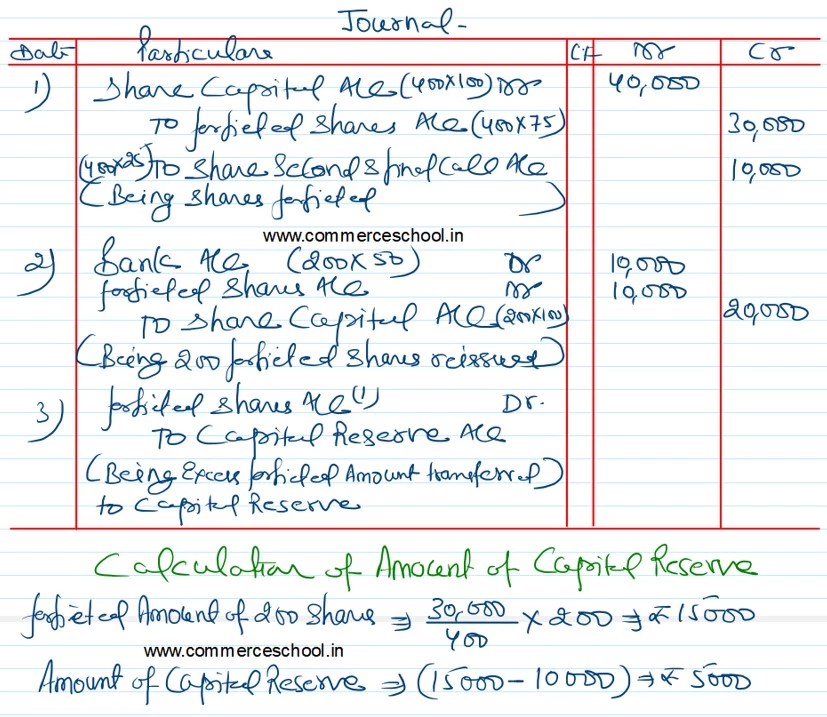 Journal -
Date Particulars LF Dr Cr
1) Share Capital A/c (400×100) Dr 40,000
To forfieted Shares A/c (400×75) 30,000
(400×25) To Share Second & final Call A/c 10,000
(Being Shares forfieted )
www.commerceschool.in
2) Bank A/c (200×50) Dr 10,000
forfieted Shares A/c Dr 10,000
To Share Capital A/c (200×100) 20,000
(Being 200 forfieted Shares reissued)
3) forfieted Shares A/c (1) Dr.
To Capital Reserve A/c
(Being Excess forfieted Amount transferred)
to Capital Reserve
Calculation of Amount of Capital Reserve
forfieted Amount of 200 Shares ⇒ 30,000/400 × 200 ⇒ ₹ 15000
www.commerceschool.in
Amount of Capital Reserve ⇒ (15000 - 10000) ⇒ ₹ 5000